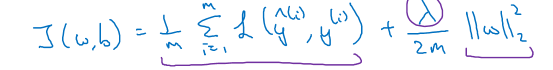 J(w,b) = 1/m ∑_{i=1}^{m} L(ŷ^{(i)}, y^{(i)}) + λ/2m ||w||_2^2